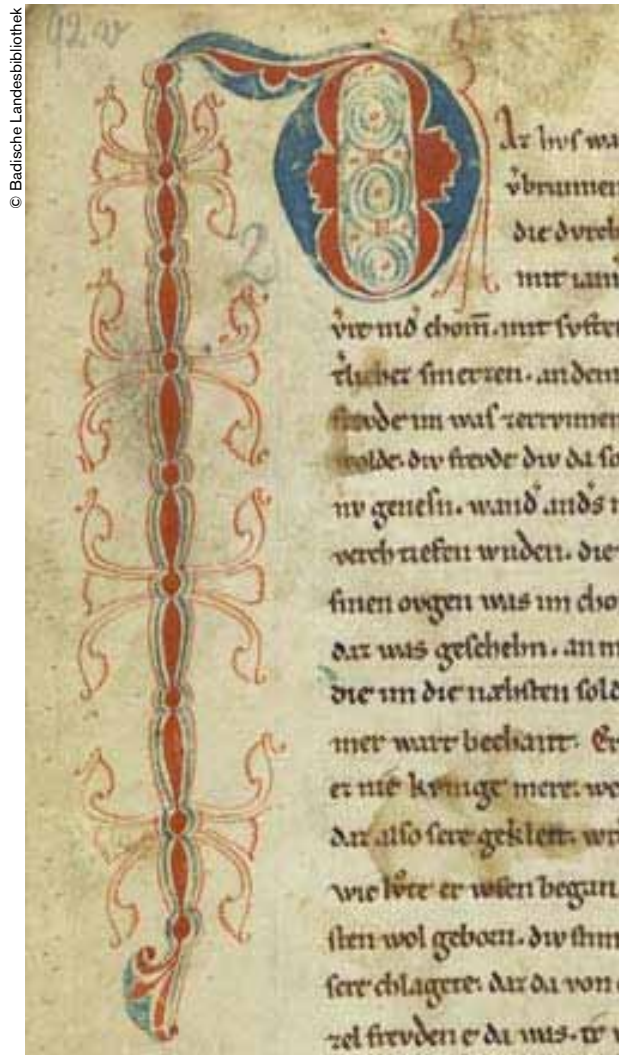 © Badische Landesbibliothek
92v
2
D
Az hvſ wa
die dvrch
mit iam
tlicher ſmerzen. an dem
frevde im waſ zerrvnnen
wolde. div frevde div da ſo
nv geneſn. wand' and's n
verch tiefen wnden. die
ſinen ovgen was im cho
daz was geſchehn. an m
die im die næhſten ſold
mer wart bechant. Er
daz alſo ſere geklett. wr
wie lvte er wfen began.
ſten wol geborn. div ſtim
ſere chlagete. daz da von
zel frevden e da was. er